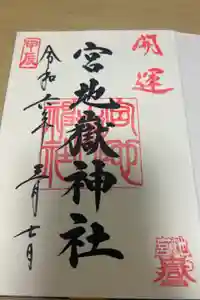 開運
宮地嶽神社
甲辰
令和六年 三月 七日